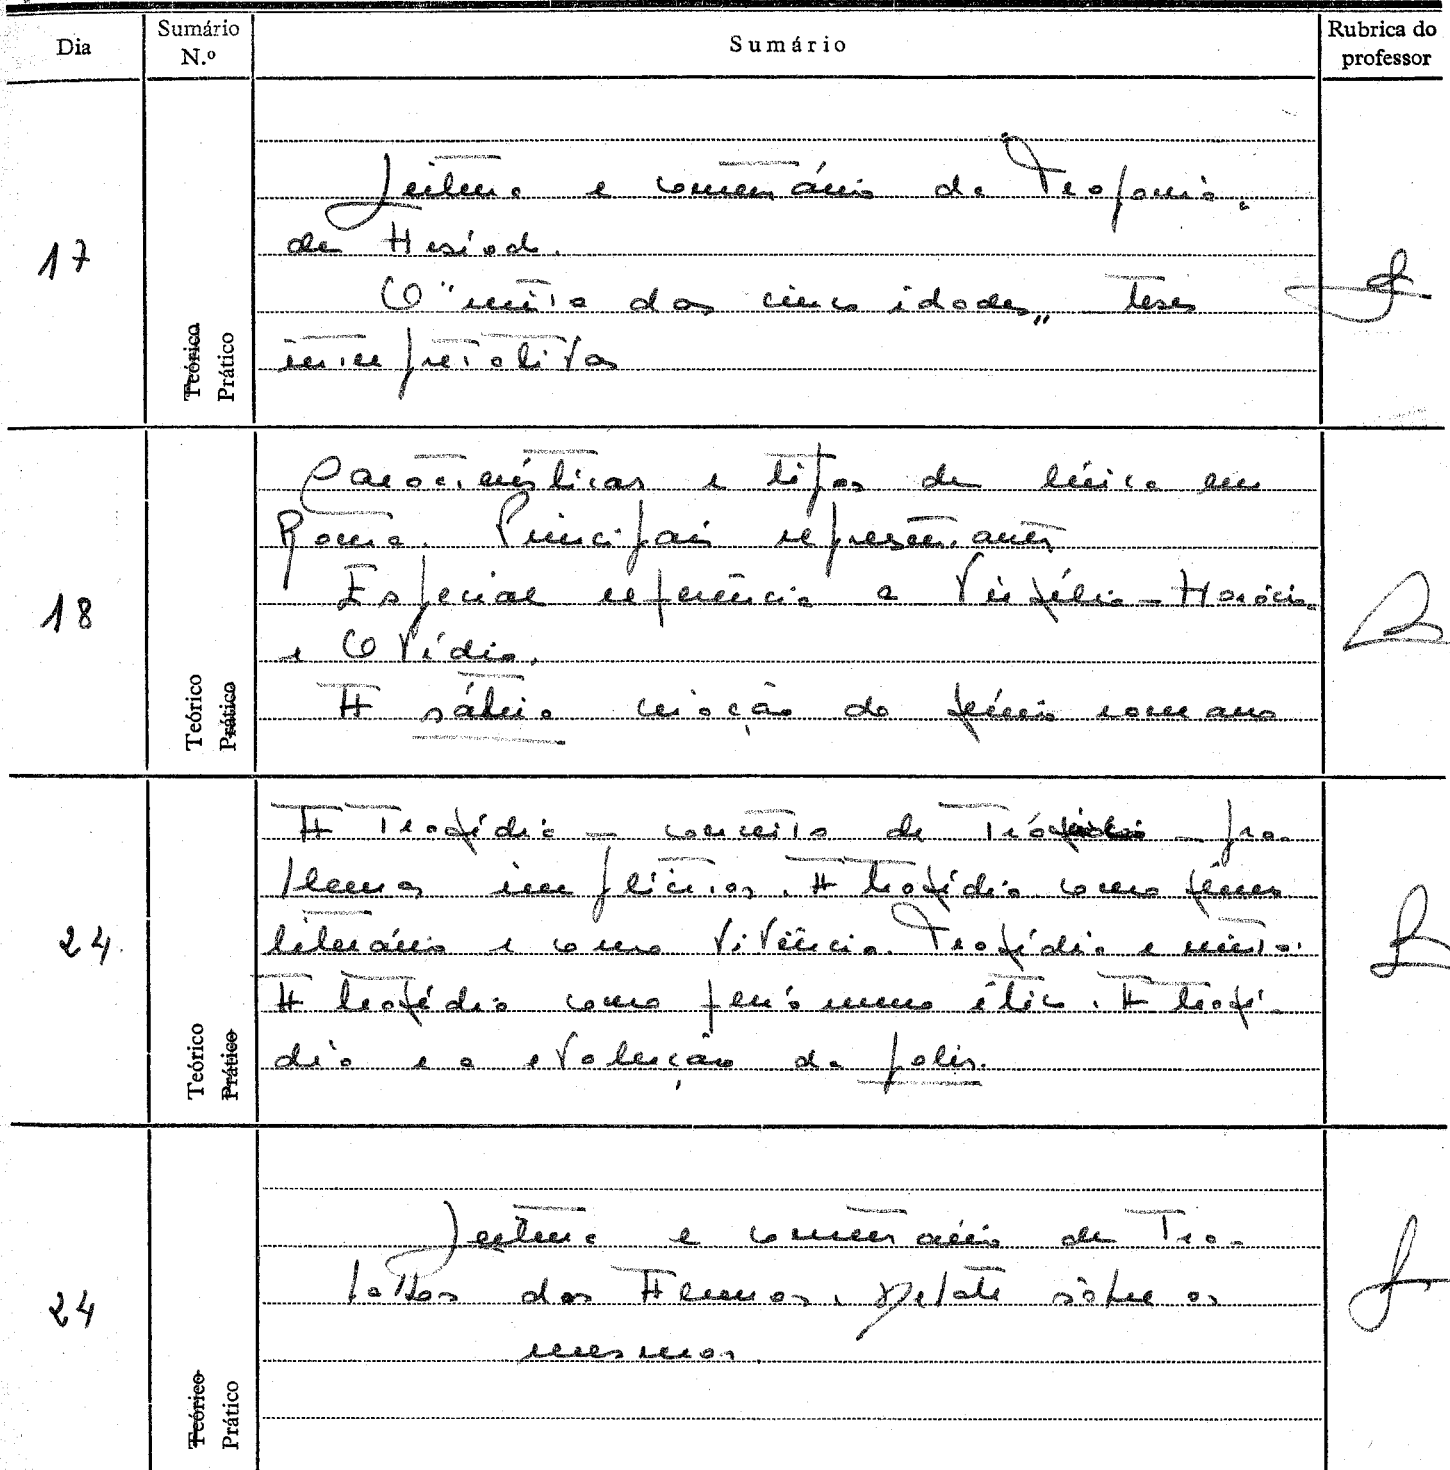 Dia Sumário N.º Sumário Rubrica do professor
17
Teórico Prático
Leitura e comentário da Teogonia,
de Hesíodo.
O "mito das cinco idades„ teses
interpretativas
18
Teórico Prático
Características e tipos de lírica em
Roma. Principais representantes
Especial referência a Virgílio - Horácio
e Ovídio.
A sátira criação do génio romano
24.
Teórico Prático
A Tragédia - conceito de Tragédia - pro-
blemas implícitos. A tragédia como género
literário e como vivência. Tragédia e mito.
A tragédia como fenómeno ético. A tragé-
dia e a evolução da polis.
24
Teórico Prático
Leitura e comentário de Tra-
balhos dos Alunos. Debate sôbre os
mesmos.